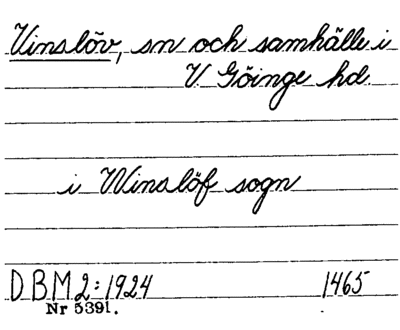 Vinslöv, sn och samhälle i
V. Göinge hd.
i Winslöf sogn
DBM 2:1924 1465
Nr 5391.